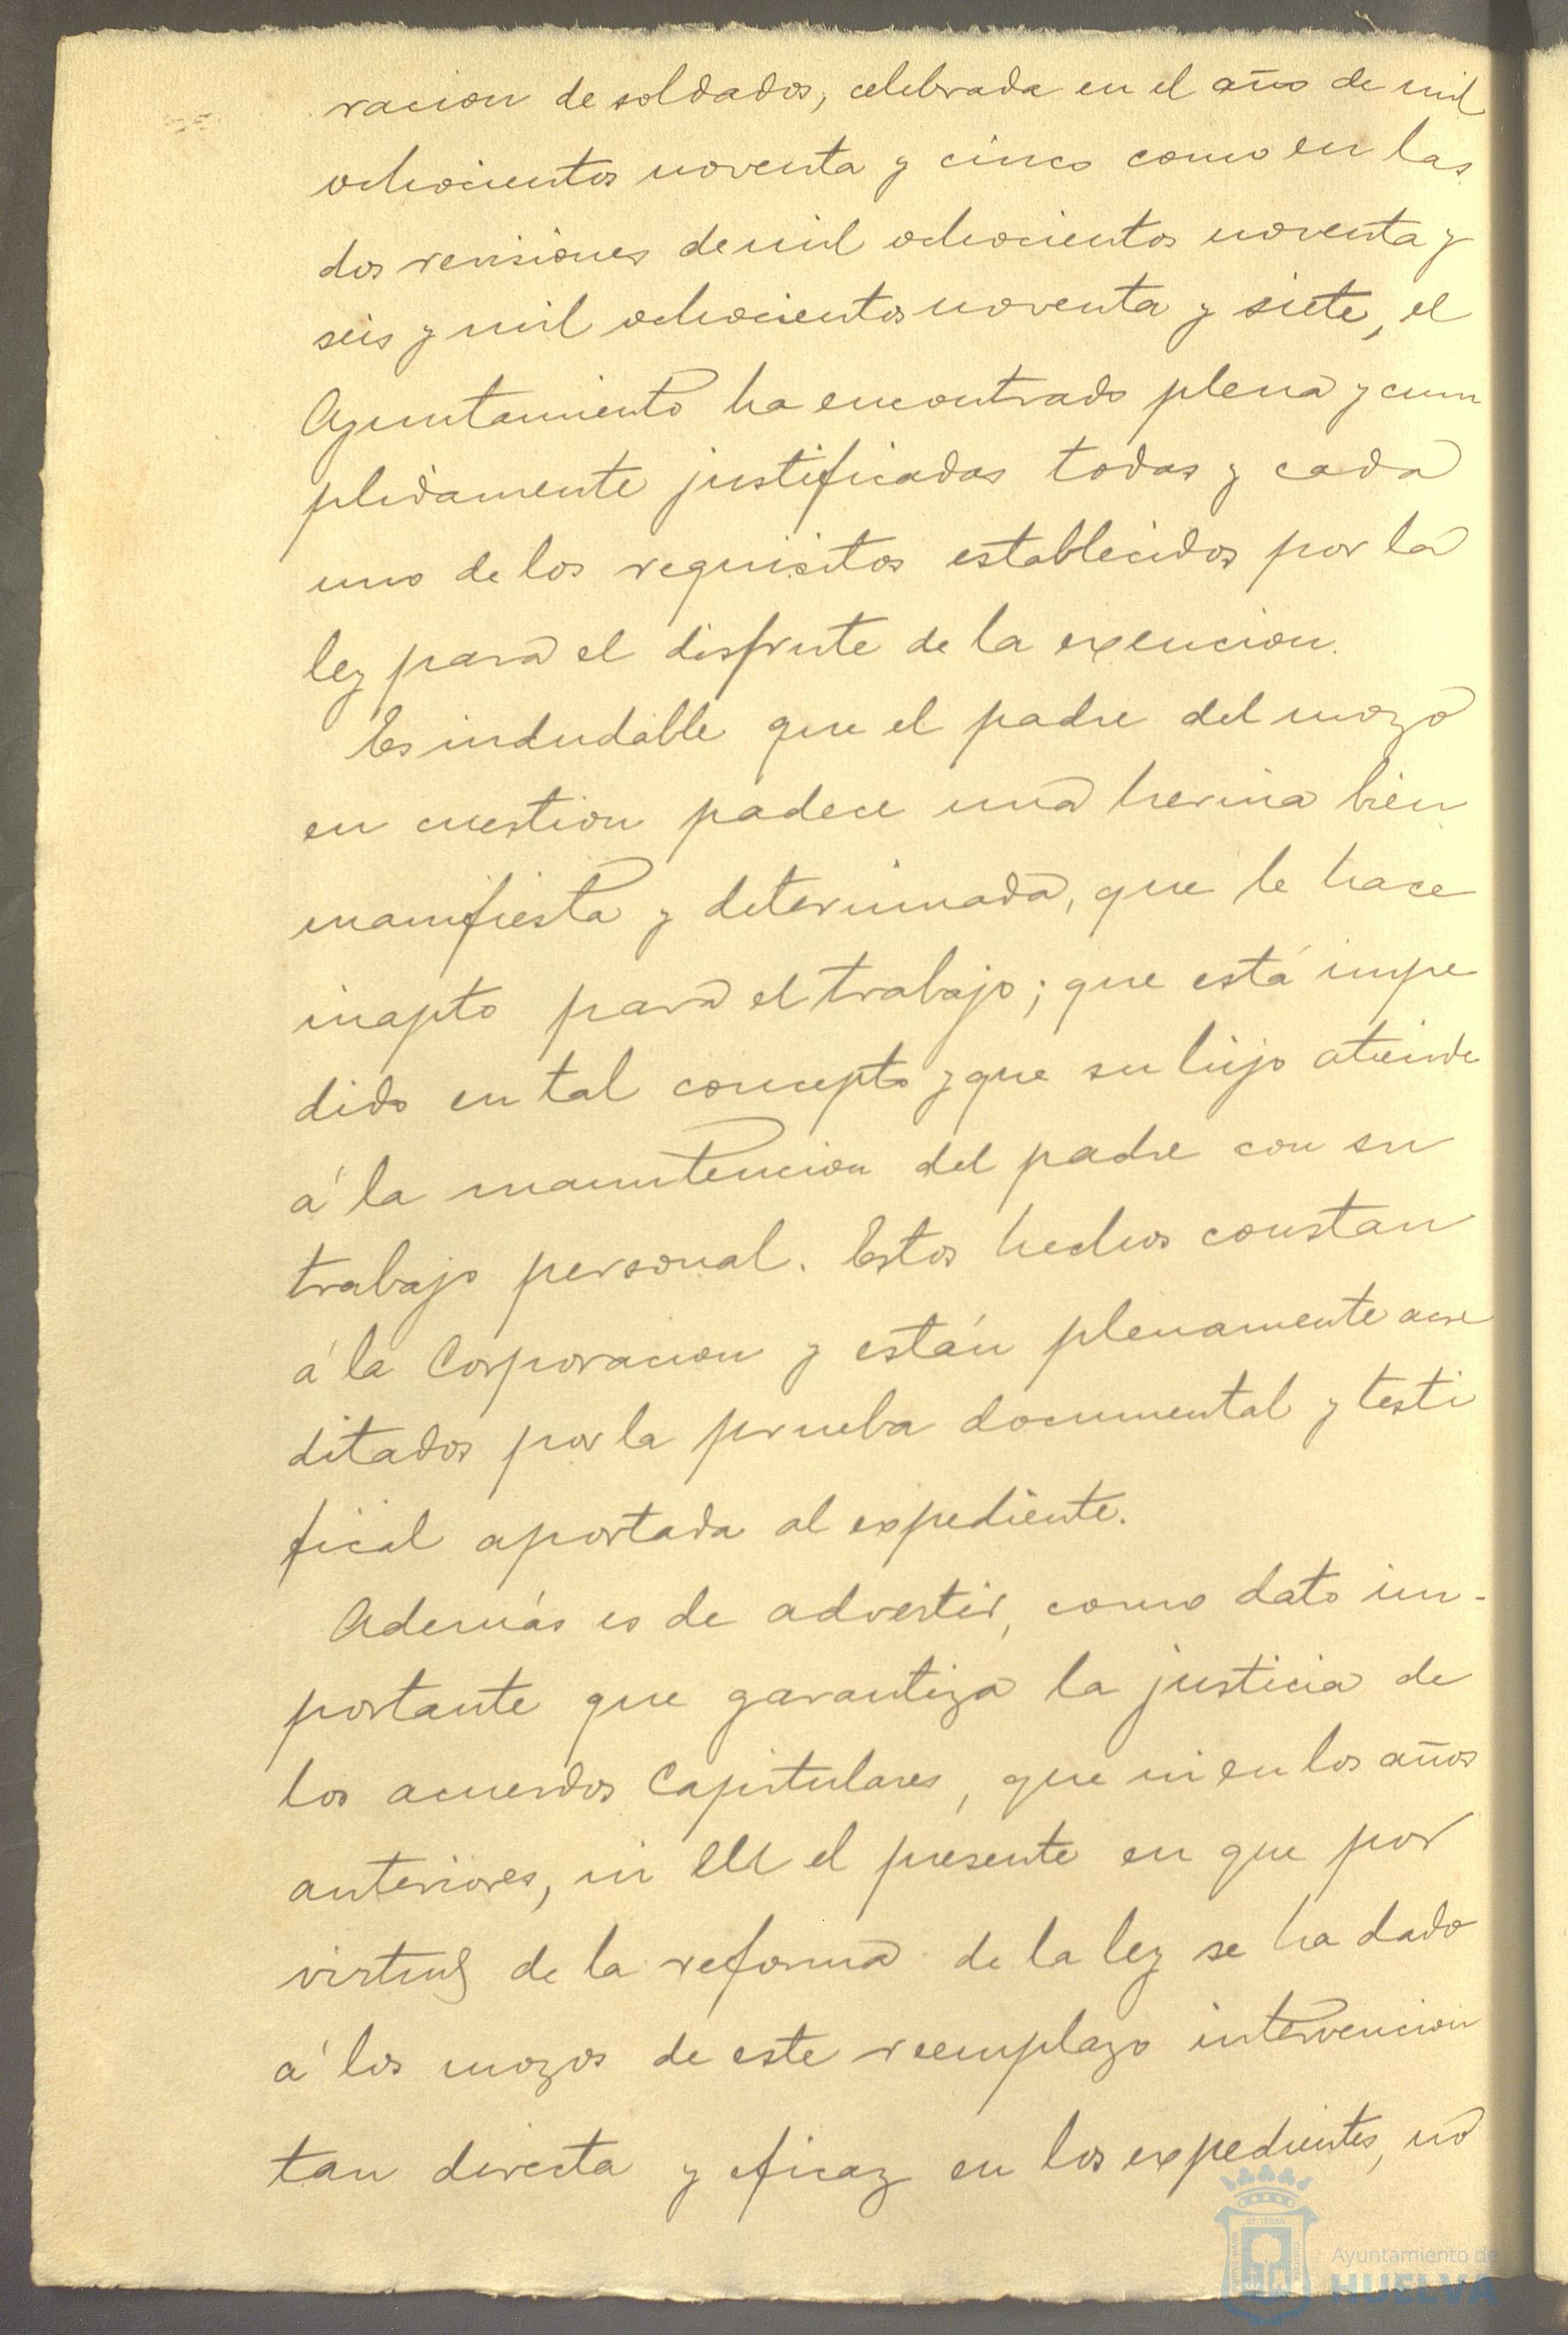 racion de soldados, celebrada en el año de mil
ochocientos noventa y cinco como en las
dos revisiones de mil ochocientos noventa y
seis y mil ochocientos noventa y siete, el
Ayuntamiento ha encontrado plena y cum
plidamente justificadas todas y cada
uno de los requisitos establecidos por la
ley para el disfrute de la exencion.
Es indudable que el padre del mozo
en cuestion padece una hernia bien
manifiesta y determinada, que le hace
inapto para el trabajo; que está impe
dido en tal concepto y que su hijo atiende
á la manutencion del padre con su
trabajo personal. Estos hechos constan
á la Corporacion y están plenamente acre
ditados por la prueba documental y testi
fical aportada al expediente.
Además es de advertir, como dato im-
portante que garantiza la justicia de
los acuerdos Capitulares, que ni en los años
anteriores, ni en el presente en que por
virtud de la reforma de la ley se ha dado
á los mozos de este reemplazo intervencion
tan directa y eficaz en los expedientes, no
Ayuntamiento de
HUELVA